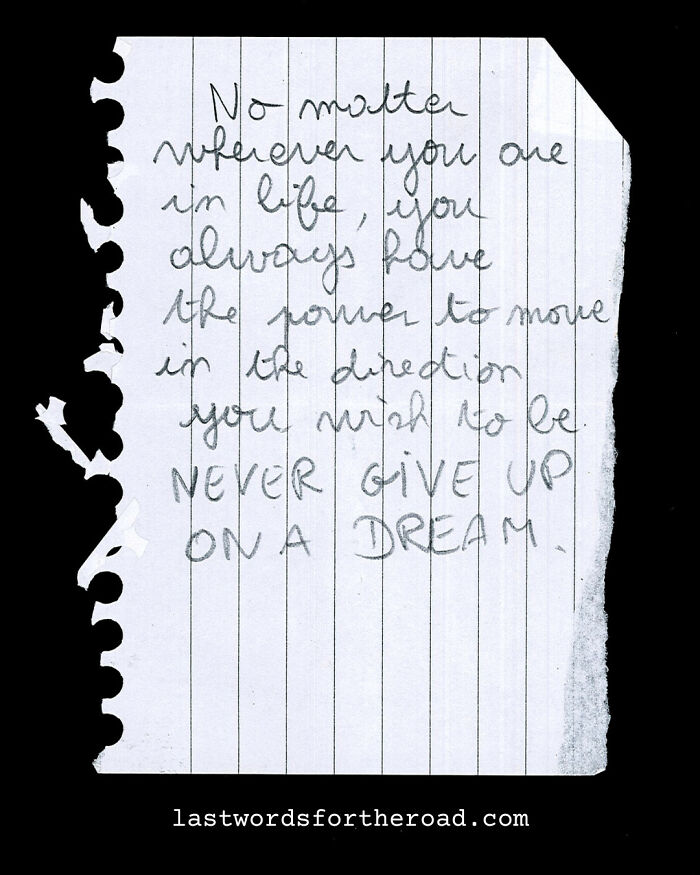 No matter
wherever you are
in life, you
always have
the power to move
in the direction
you wish to be
NEVER GIVE UP
ON A DREAM.
lastwordsfortheroad.com